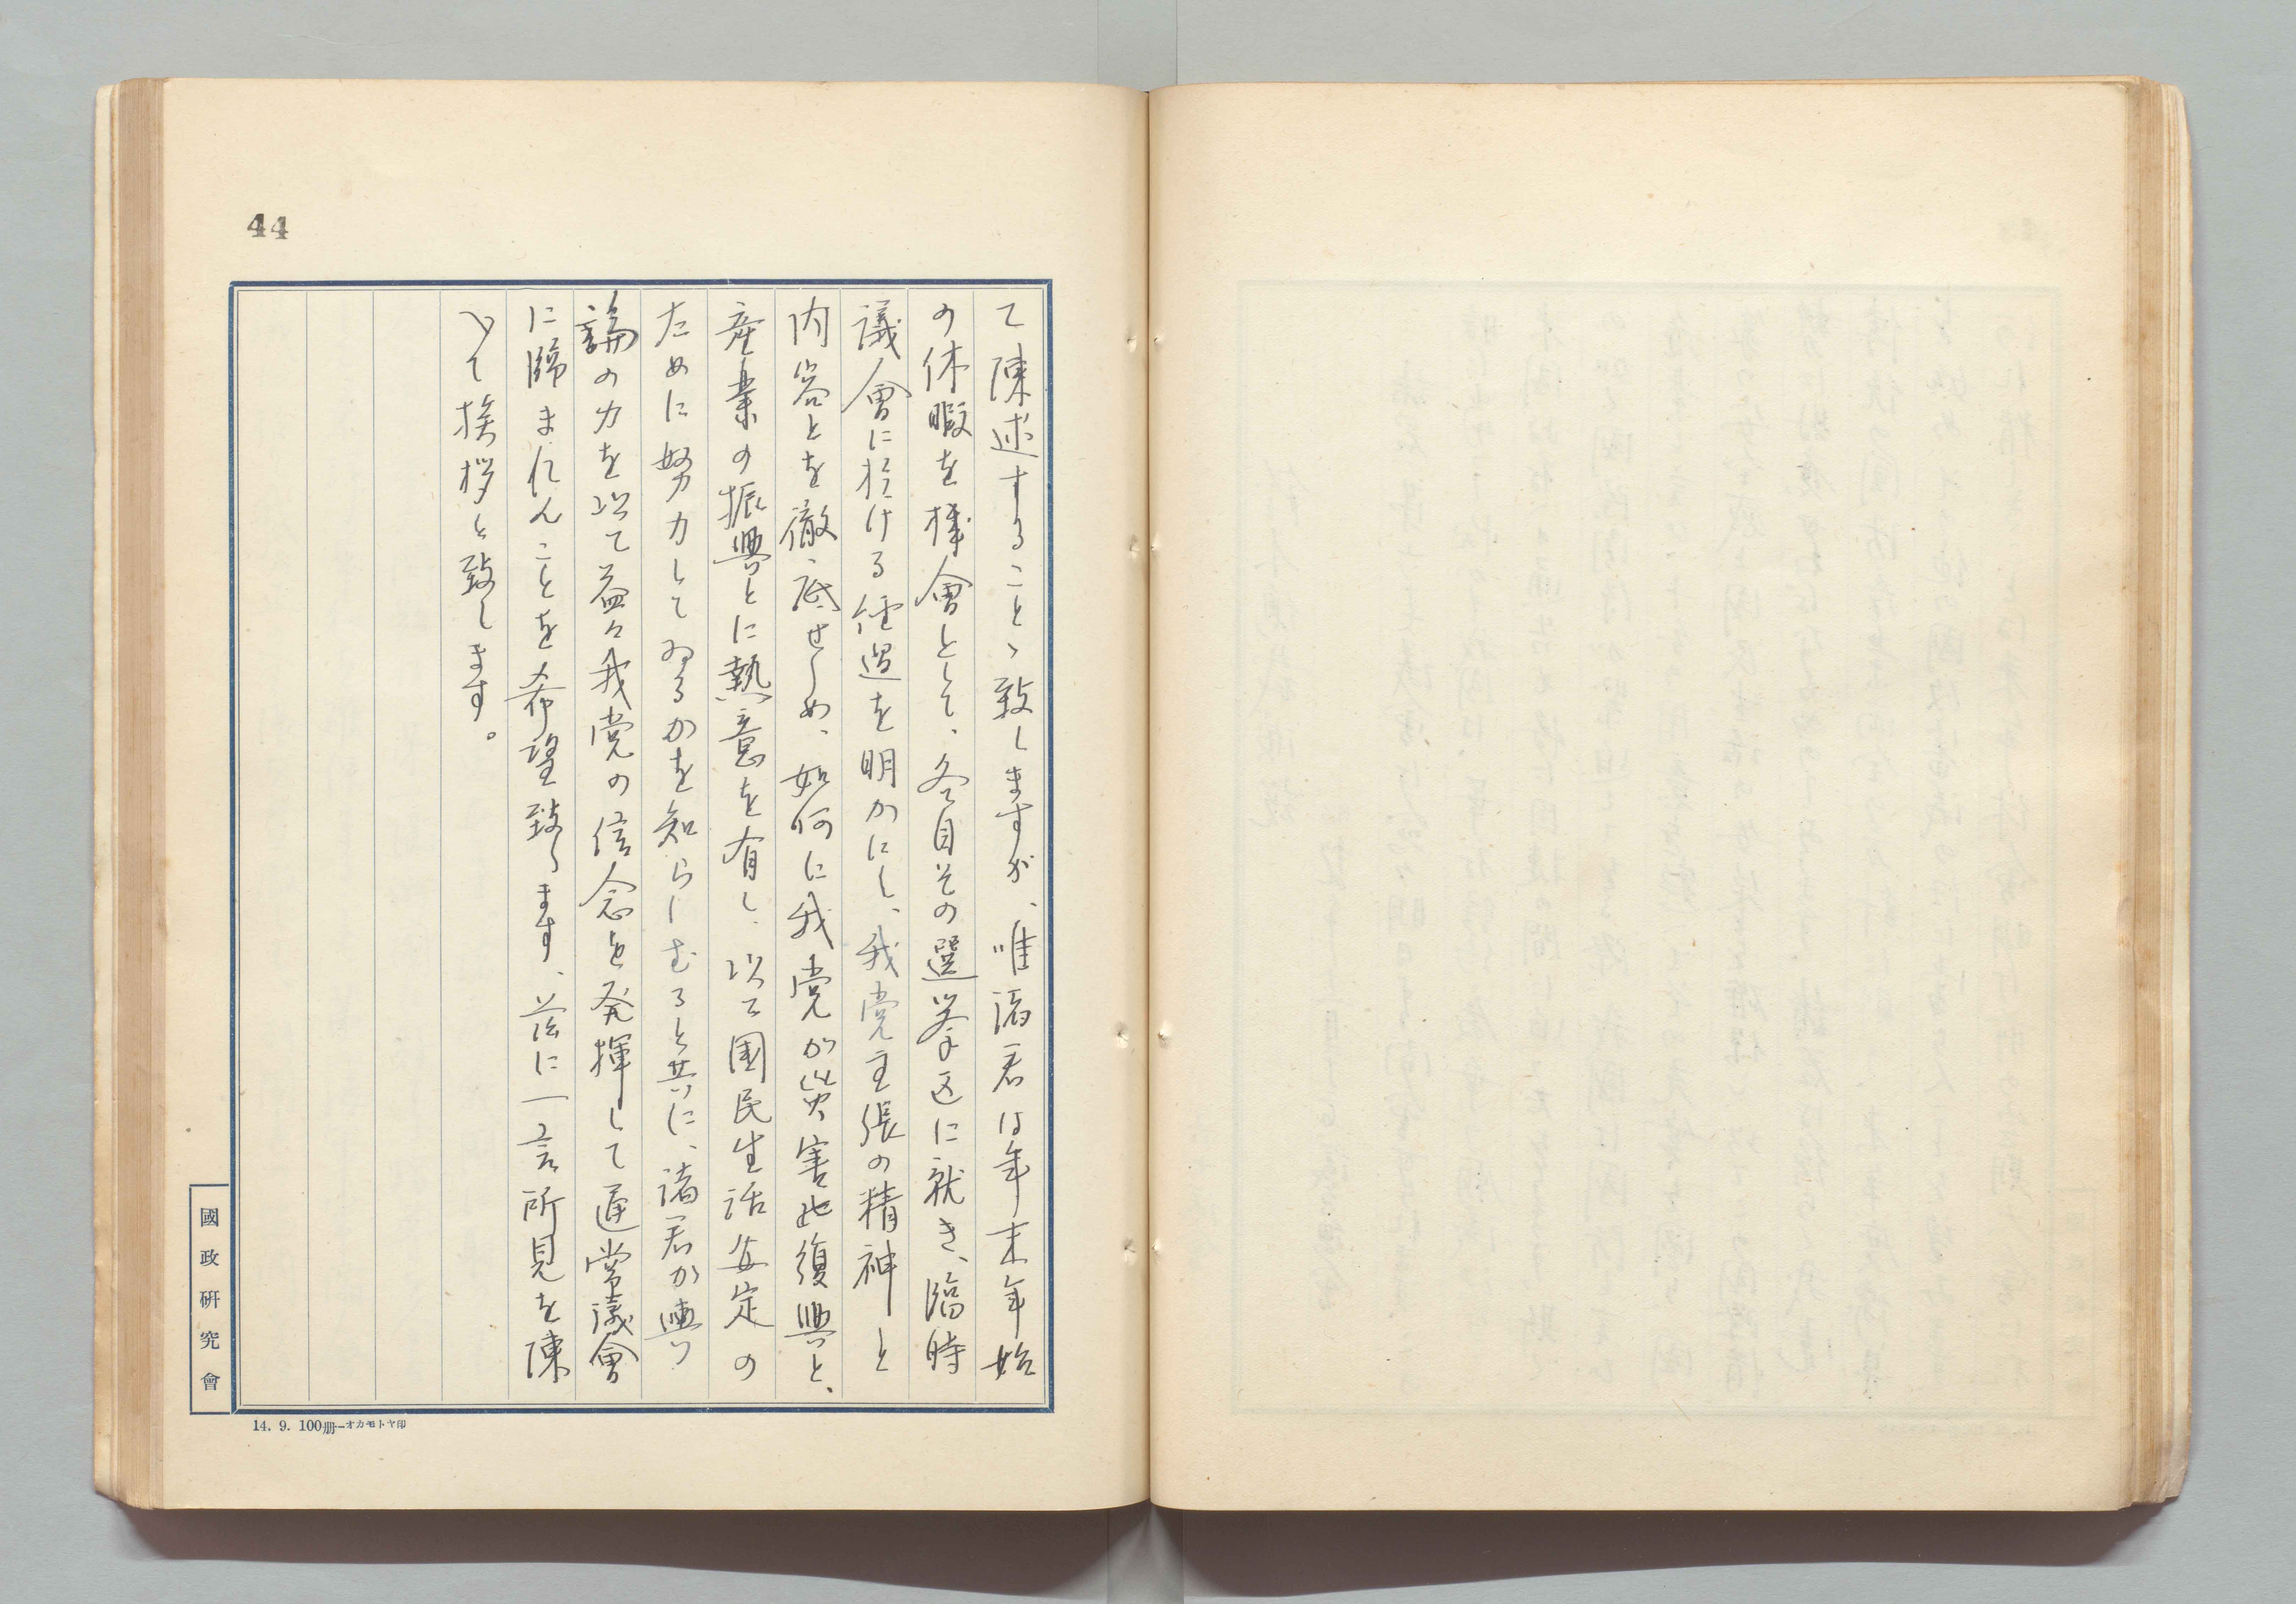 44
て陳述することゝ致しますが、唯諸君は年末年始
の休暇を機會として、各自その選挙区に就き、臨時
議會に於ける経過を明かにし、我党主張の精神と
内容とを徹底せしめ、如何に我党が災害地復興と、
産業の振興とに熱意を有し、以て国民生活安定の
ために努力してゐるかを知らしむると共に、諸君が輿
論の力を以て益々我党の信念を発揮して通常議會
に臨まれんことを希望致します、茲に一言所見を陳
べて挨拶と致します。
國政研究會
14. 9. 100册—オカモトヤ印